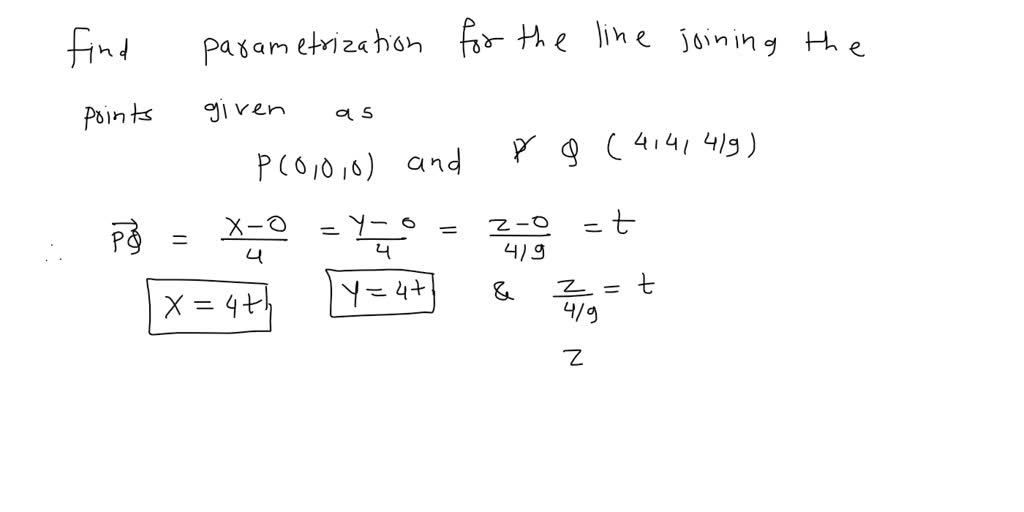 Find parametrization for the line joining the
points given as
P(0,0,0) and Q (4,4,4/9)
∴ PQ⃗ = x-0/4 = y-0/4 = z-0/4/9 = t
x = 4t y = 4t & z/4/9 = t
z